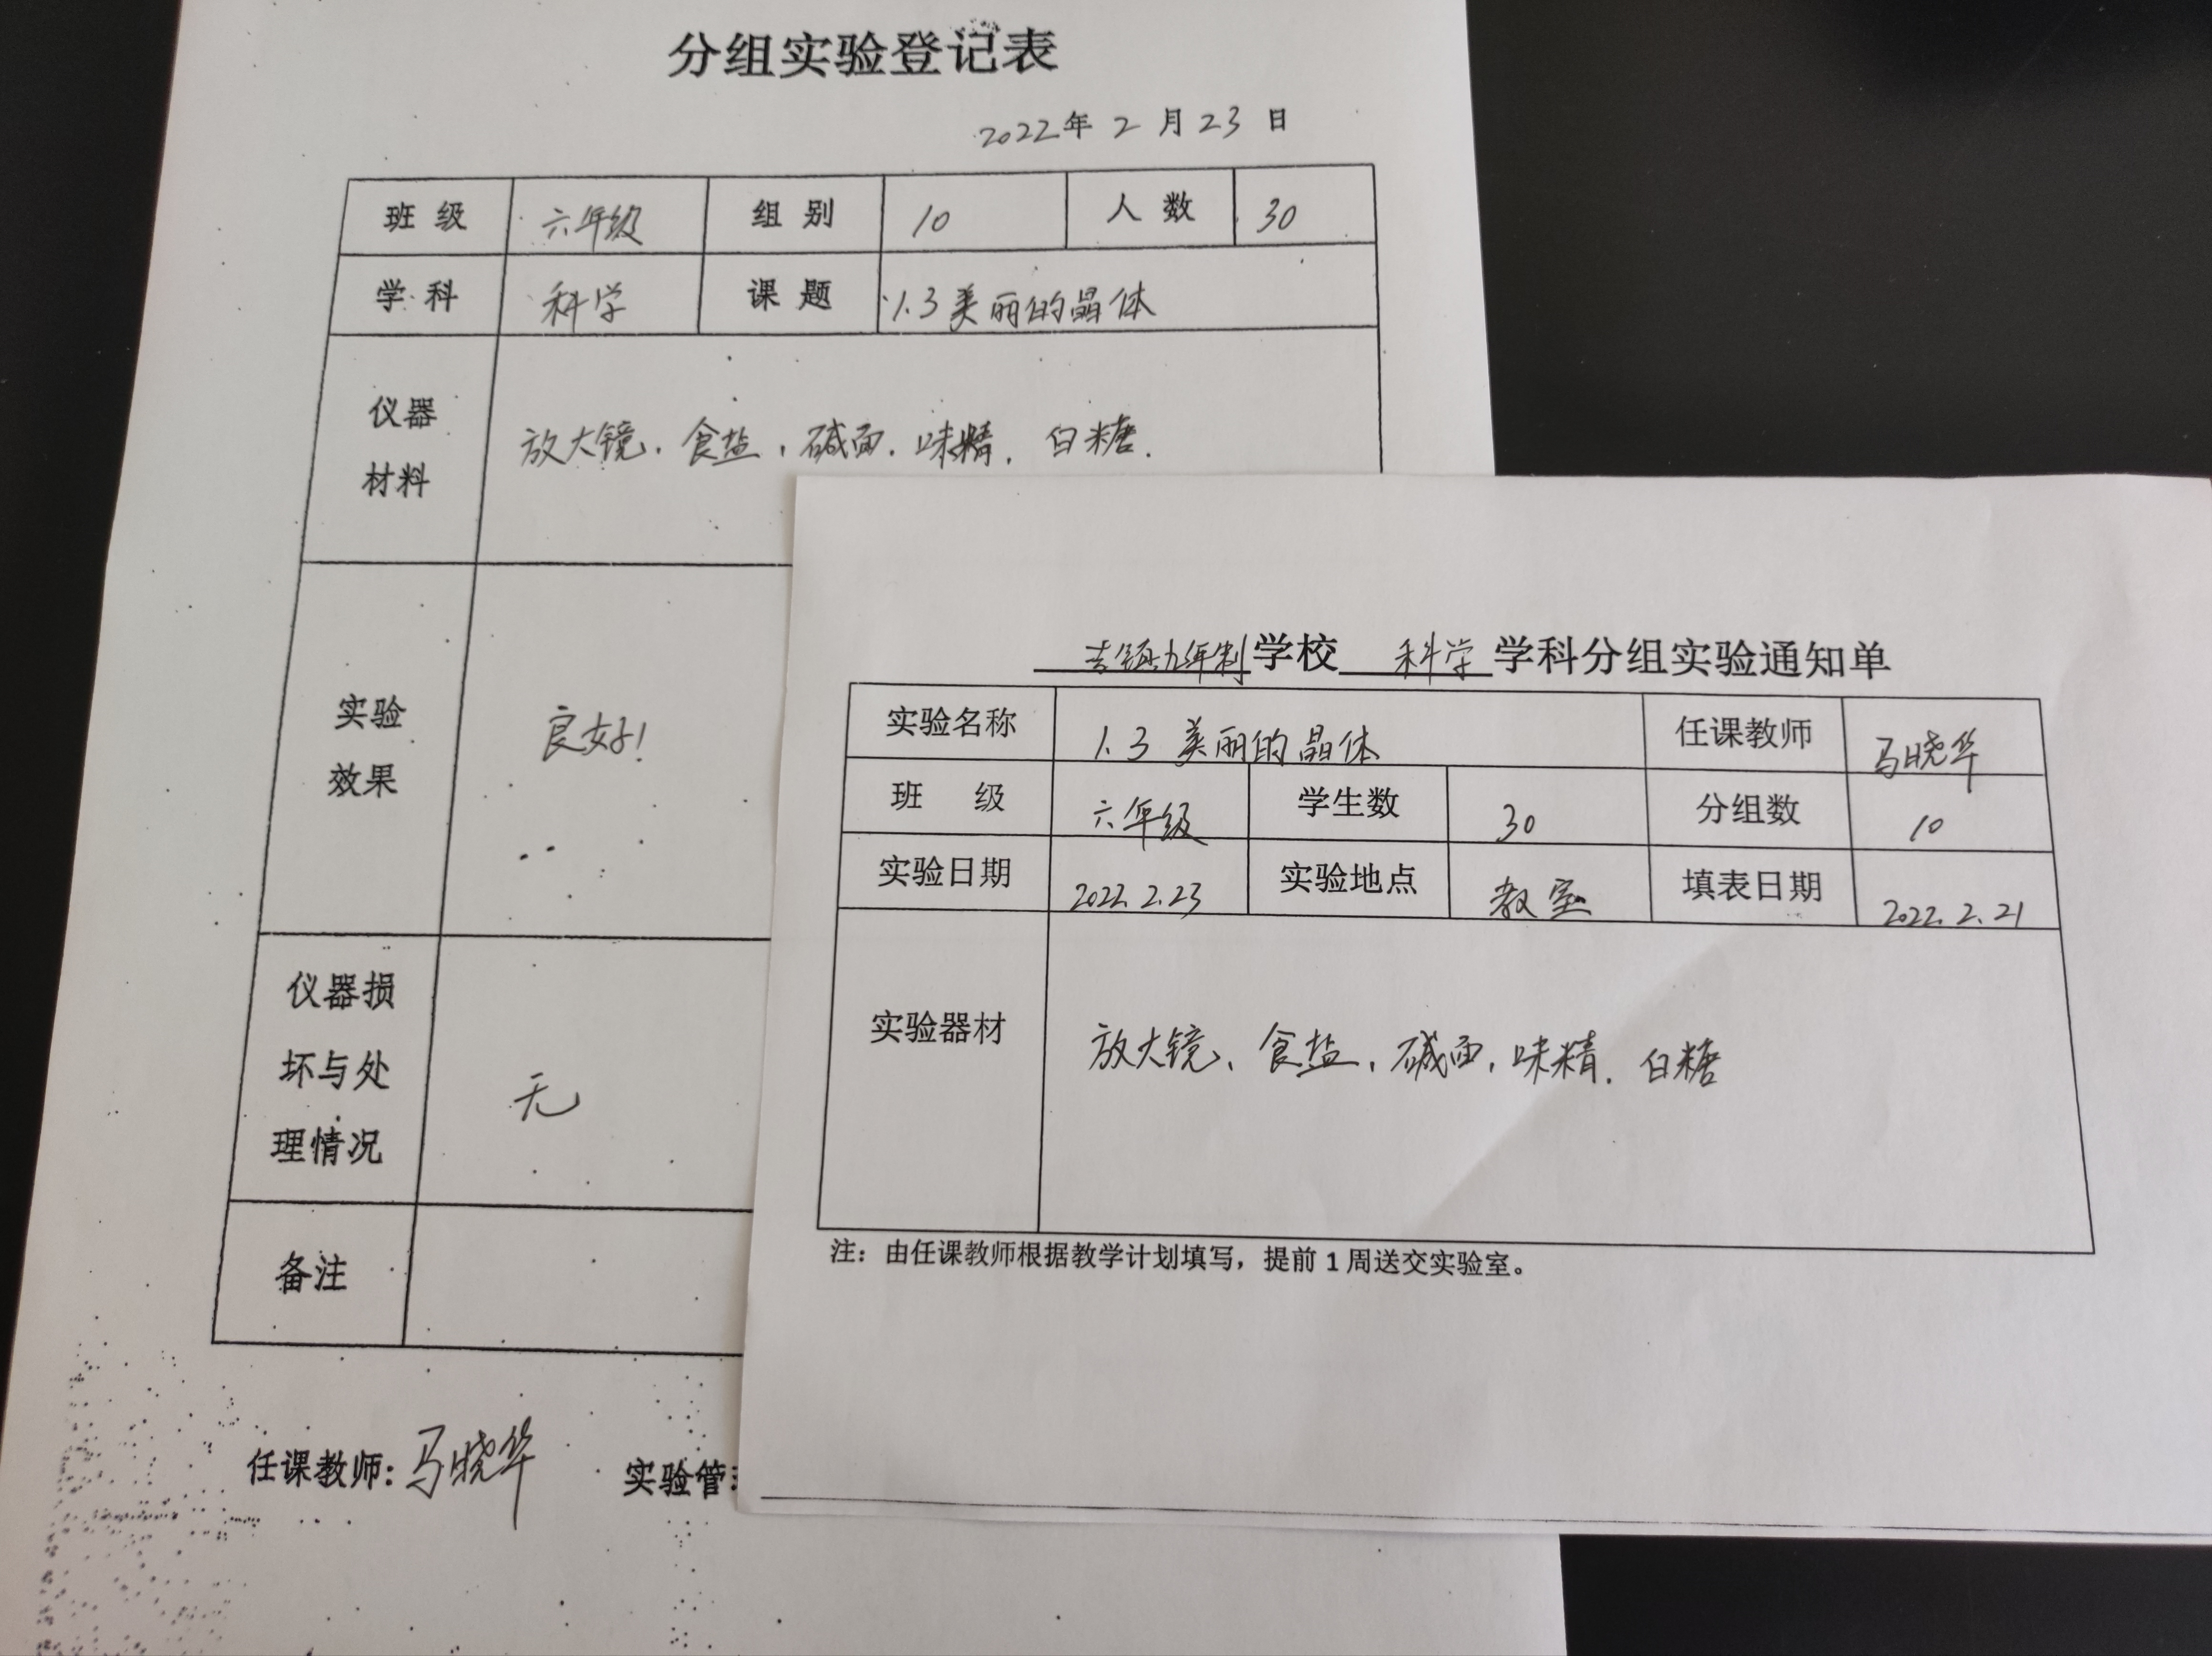 分组实验登记表
2022年 2 月 23 日
班 级 六年级 组 别 10 人 数 30
学 科 科学 课 题 1.3 美丽的晶体
仪器
材料
放大镜、食盐、碱面、味精、白糖.
实验
效果
良好!
仪器损
坏与处
理情况
无
备注
任课教师: 马晓华 实验管
吉镇九年制学校 科学 学科分组实验通知单
实验名称 1.3 美丽的晶体 任课教师 马晓华
班 级 六年级 学生数 30 分组数 10
实验日期 2022.2.23 实验地点 教室 填表日期 2022.2.21
实验器材 放大镜、食盐、碱面、味精、白糖
注：由任课教师根据教学计划填写，提前 1 周送交实验室。